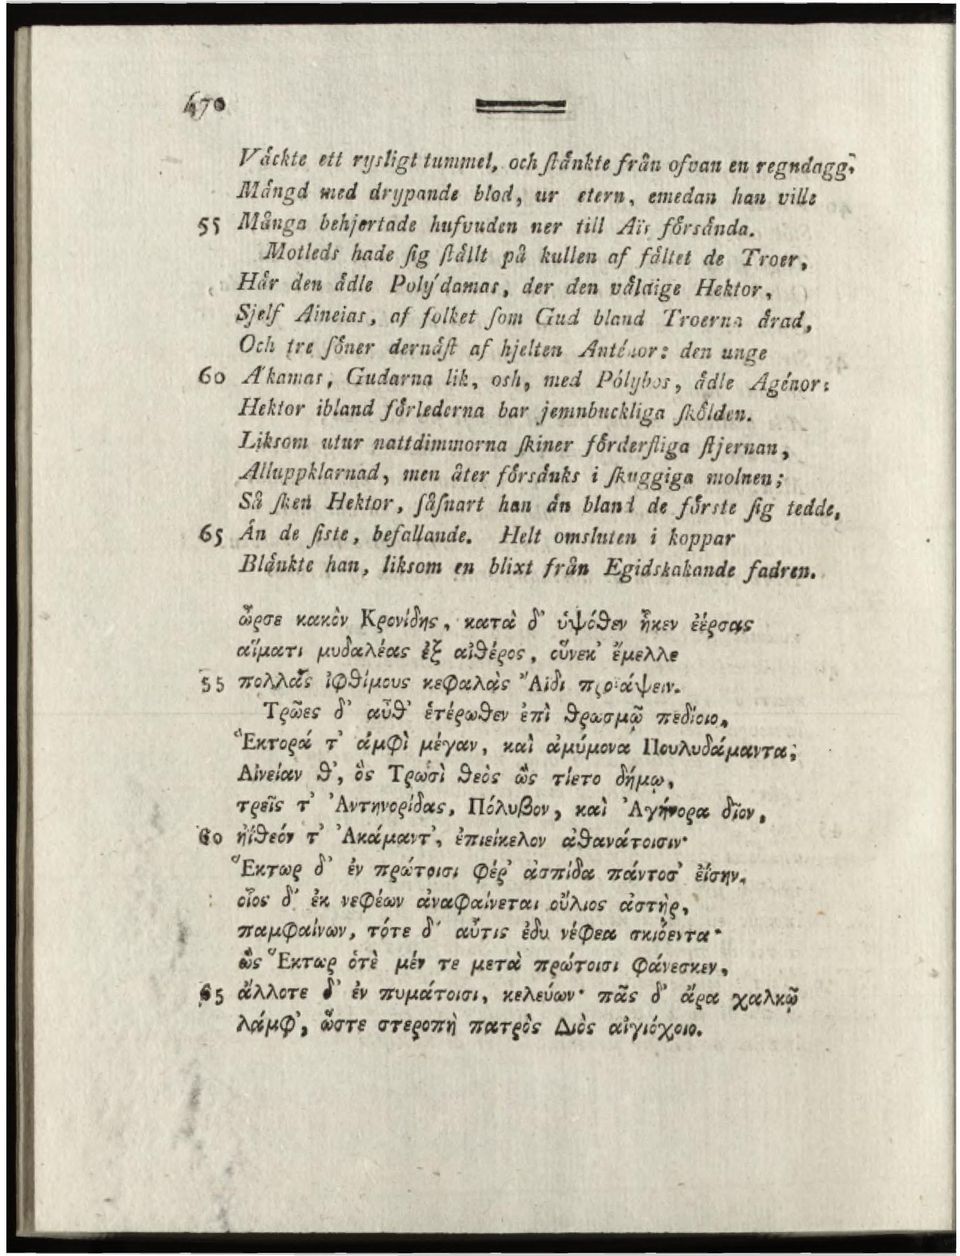 470
Våckte ett rysligt tummel, och ſtånkte från ofvan en regndagg,
Mångd med drypande blod, ur etern, emedan han ville
55 Många behjertade hufvuden ner till Aïs försånda.
Motleds hade ſig ſtållt på kullen af fåltet de Troer,
Hår den ådle Poly'damas, der den våldige Hektor,
Sjelf Aineias, af folket ſom Gud bland Troerna årad,
Och tre ſöner dernåſt af hjelten Anténor: den unge
60 A'kamas, Gudarna lik, osh, med Pólybos, ådle Agénor:
Hektor ibland förlederna bar jemnbuckliga ſkölden.
Liksom utur nattdimmorna ſkiner förderſliga ſtjernan,
Alluppklarnad, men åter försånks i ſkuggiga molnen;
Så ſken Hektor, ſåſnart han ån bland de förste ſig tedde,
65 Ån de ſiste, befallande. Helt omsluten i koppar
Blånkte han, liksom en blixt från Egidskakande fadren.
ὦρσε κακὸν Κρονίδης, κατὰ δ' ὑψόθεν ἧκεν ἐέρσας
αἵματι μυδαλέας ἐξ αἰθέρος, οὕνεκ' ἔμελλε
55 πολλὰς ἰφθίμους κεφαλὰς Ἄϊδι προϊάψειν.
Τρῶες δ' αὖθ' ἑτέρωθεν ἐπὶ θρωσμῷ πεδίοιο,
Ἕκτορά τ' ἀμφὶ μέγαν, καὶ ἀμύμονα Πουλυδάμαντα,
Αἰνείαν θ', ὃς Τρωσὶ θεὸς ὣς τίετο δήμῳ,
τρεῖς τ' Ἀντηνορίδας, Πόλυβον, καὶ Ἀγήνορα δῖον,
60 ἠΐθεόν τ' Ἀκάμαντ', ἐπιείκελον ἀθανάτοισιν·
Ἕκτωρ δ' ἐν πρώτοισι φέρ' ἀσπίδα πάντοσ' ἐΐσην.
οἷος δ' ἐκ νεφέων ἀναφαίνεται οὔλιος ἀστὴρ,
παμφαίνων, τότε δ' αὖτις ἔδυ νέφεα σκιόεντα·
ὣς Ἕκτωρ ὁτὲ μέν τε μετὰ πρώτοισι φάνεσκεν,
65 ἄλλοτε δ' ἐν πυμάτοισι, κελεύων· πᾶς δ' ἄρα χαλκῷ
λάμφ', ὥστε στεροπὴ πατρὸς Διὸς αἰγιόχοιο.